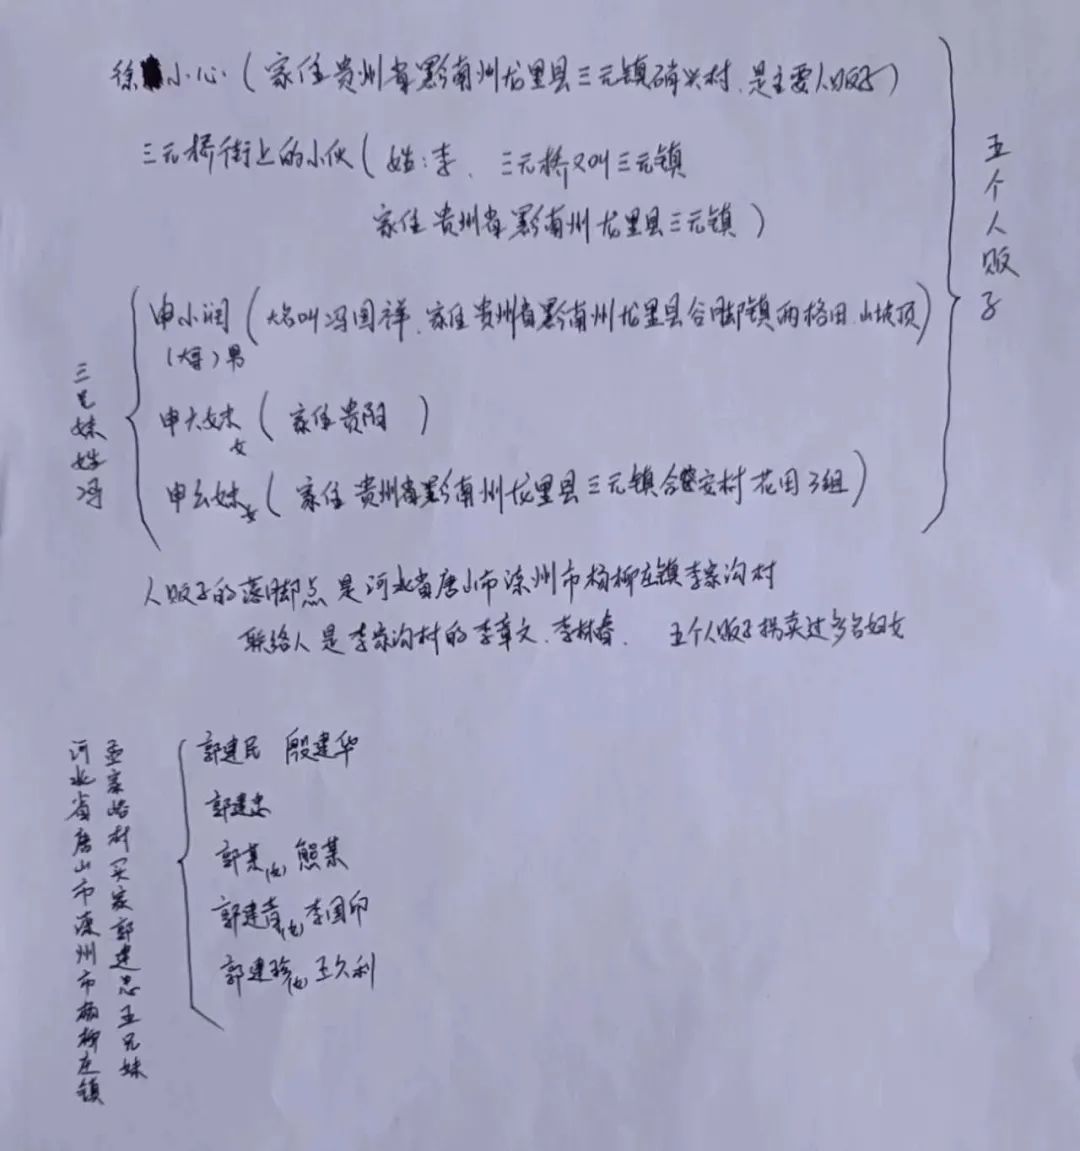 徐小心(家住贵州省黔南州龙里县三元镇硝兴村.是主要人贩子)
三元桥街上的小伙(姓:李、三元桥又叫三元镇
家住贵州省黔南州龙里县三元镇)
五个人贩子
三兄妹姓冯
申小润(大名叫冯国祥.家住贵州省黔南州龙里县谷脚镇两格田.山坡顶)
(大哥)男
申大妹女(家住贵阳)
申幺妹女(家住贵州省黔南州龙里县三元镇合安村花用3组)
人贩子的落脚点是河北省唐山市滦州市杨柳庄镇李家沟村
联络人是李家沟村的李章文.李树春.五个人贩子拐卖过多名妇女
河北省唐山市滦州市杨柳庄镇
孟家峪村买家郭建忠五兄妹
郭建民 殷建华
郭建忠
郭某(女)熊某
郭建青(女)李国印
郭建珍(女)王久利